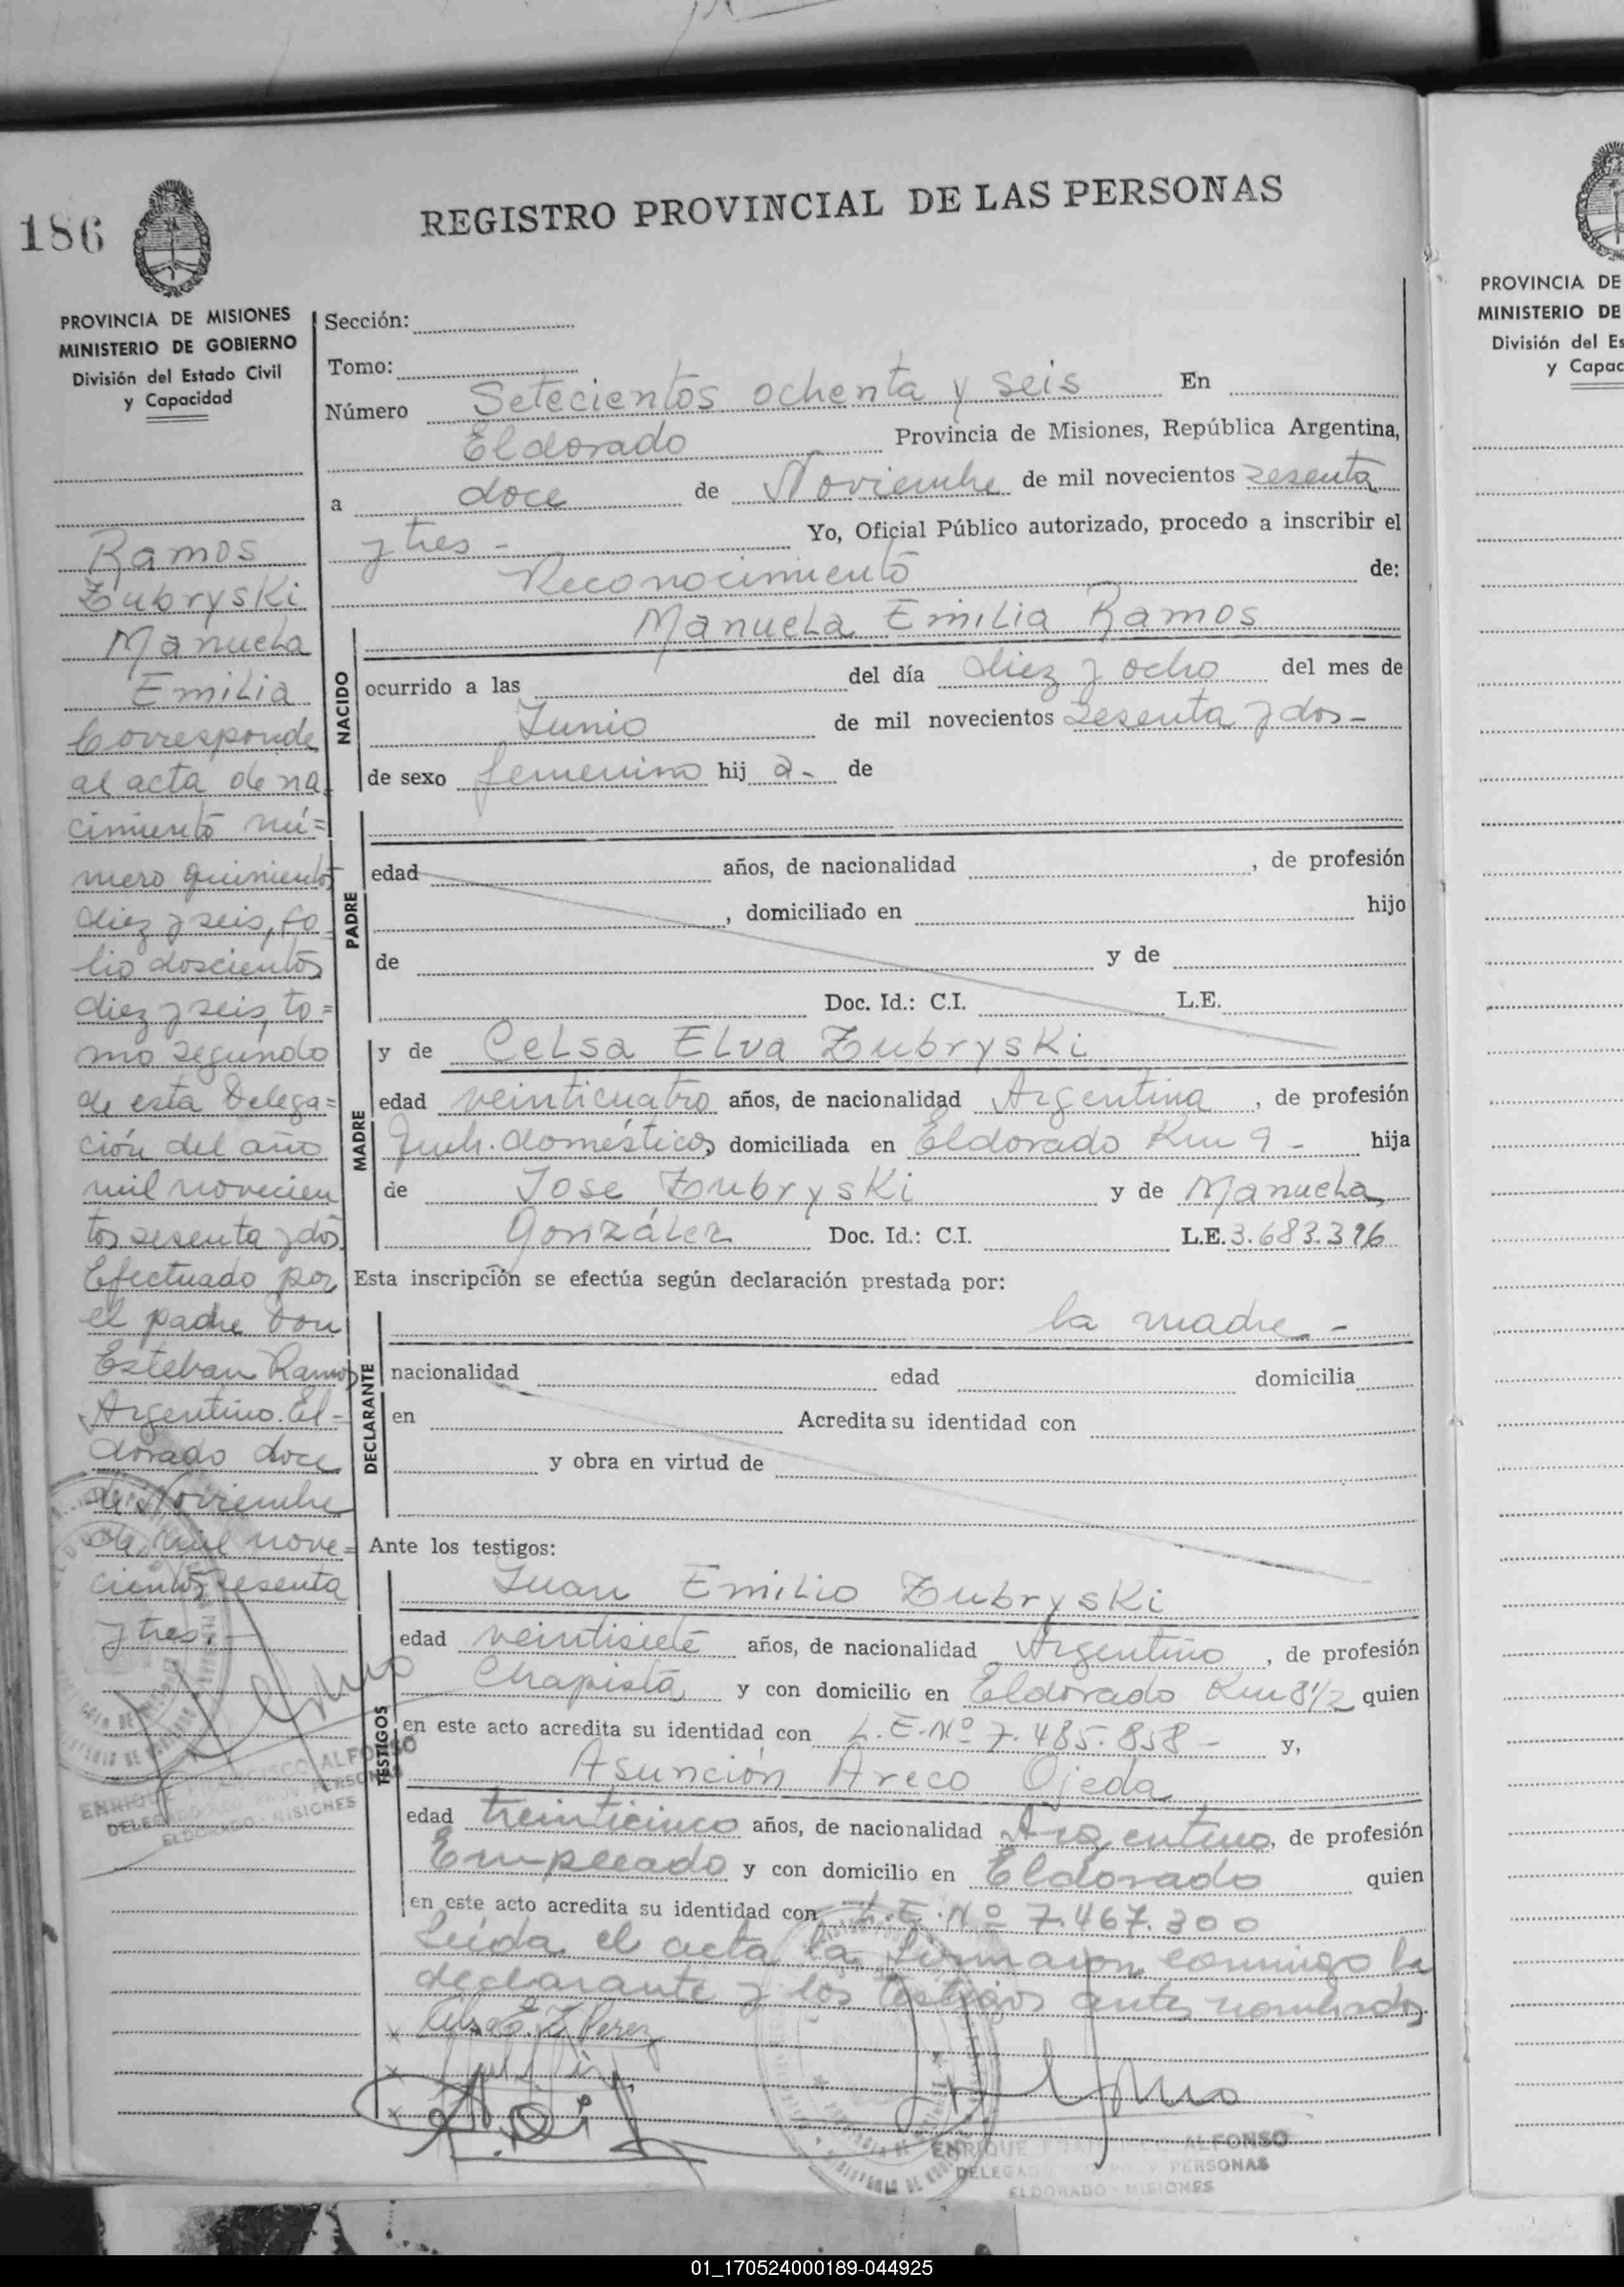 186
REGISTRO PROVINCIAL DE LAS PERSONAS
PROVINCIA DE MISIONES
MINISTERIO DE GOBIERNO
División del Estado Civil
y Capacidad
Ramos
Zubryski
Manuela
Emilia
Corresponde
al acta de na
cimiento nú=
mero quinientos
diez y seis, fo
lio doscientos
diez y seis, to=
mo segundo
de esta Delega=
ción del año
mil novecien
tos sesenta y dos
Efectuado por
el padre Don
Esteban Ramos
Argentino. El=
dorado doce
de Noviembre
de mil nove=
cientos sesenta
y tres.-
ENRIQUE FRANCISCO ALFONSO
DELEGADO REG. PROV. PERSONAS
ELDORADO - MISIONES
Sección:
Tomo:
Número Setecientos ochenta y seis En
Eldorado Provincia de Misiones, República Argentina,
a doce de Noviembre de mil novecientos sesenta
y tres - Yo, Oficial Público autorizado, procedo a inscribir el
Reconocimiento de:
NACIDO
Manuela Emilia Ramos
ocurrido a las del día diez y ocho del mes de
Junio de mil novecientos sesenta y dos-
de sexo femenino hij a- de
PADRE
edad años, de nacionalidad , de profesión
, domiciliado en hijo
de y de
Doc. Id.: C.I. L.E.
MADRE
y de Celsa Elva Zubryski
edad veinticuatro años, de nacionalidad Argentina , de profesión
Queh. domésticos domiciliada en Eldorado Km 9 - hija
de Jose Zubryski y de Manuela
González Doc. Id.: C.I. L.E. 3.683.396
Esta inscripción se efectúa según declaración prestada por:
la madre -
DECLARANTE
nacionalidad edad domicilia
en Acredita su identidad con
y obra en virtud de
Ante los testigos:
TESTIGOS
Juan Emilio Zubryski
edad veintisiete años, de nacionalidad Argentino , de profesión
Chapista y con domicilio en Eldorado Km 8 1/2 quien
en este acto acredita su identidad con L.E.Nº 7.485.858 - y,
Asunción Areco Ojeda
edad treinticinco años, de nacionalidad Argentino, de profesión
Empleado y con domicilio en Eldorado quien
en este acto acredita su identidad con L.E.Nº 7.467.300
Leída el acta la firmaron conmigo la
declarante y los testigos antes nombrados
x Celsa E. Z. Perez
x
x
ENRIQUE FRANCISCO ALFONSO
DELEGADO REG. PROV. PERSONAS
ELDORADO - MISIONES
PROVINCIA DE
MINISTERIO DE
División del Es
y Capac
01_170524000189-044925